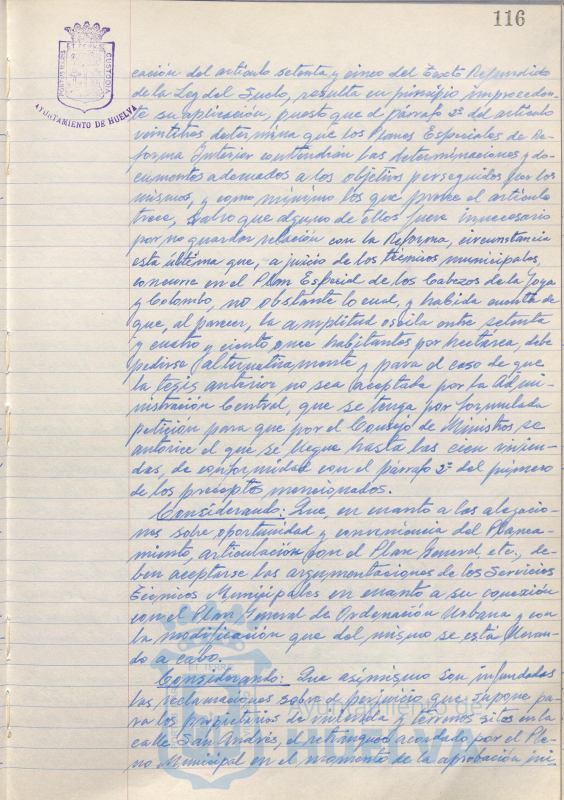 116
PORTUS MARIS ET TERRAE CUSTODIA
AYUNTAMIENTO DE HUELVA
cación del artículo setenta y cinco del Texto Refundido
de la Ley del Suelo, resulta en principio improceden-
te su aplicación, puesto que el párrafo 2º del artículo
veintitres determina que los Planes Especiales de Re-
forma Interior contendrán las determinaciones y do-
cumentos adecuados a los objetivos perseguidos por los
mismos, y como mínimo los que prevee el artículo
trece, salvo que alguno de ellos fuera innecesario
por no guardar relación con la Reforma, circunstancia
esta última que, a juicio de los técnicos municipales,
concurre en el Plan Especial de los Cabezos de la Joya
y Colombo, no obstante lo cual, y habida cuenta de
que, al parecer, la amplitud oscila entre setenta
y cuatro y ciento once habitantes por hectárea, debe
pedirse alternativamente y para el caso de que
la tesis anterior no sea aceptada por la Admi-
nistración Central, que se tenga por formulada
petición para que por el Consejo de Ministros se
autorice el que se llegue hasta las cien vivien-
das, de conformidad con el párrafo 2º del primero
de los preceptos mencionados.
Considerando: Que, en cuanto a las alegacio-
nes sobre oportunidad y conveniencia del Planea-
miento, articulación con el Plan General, etc., de-
ben aceptarse las argumentaciones de los Servicios
Técnicos Municipales en cuanto a su conexión
con el Plan General de Ordenación Urbana y con
la modificación que del mismo se está llevan-
do a cabo.
Considerando: Que asimismo son infundadas
las reclamaciones sobre el perjuicio que supone pa-
ra los propietarios de vivienda y terrenos sitos en la
calle San Andrés, el retranqueo acordado por el Ple-
no Municipal en el momento de la aprobación ini-
Ayuntamiento de
HUELVA